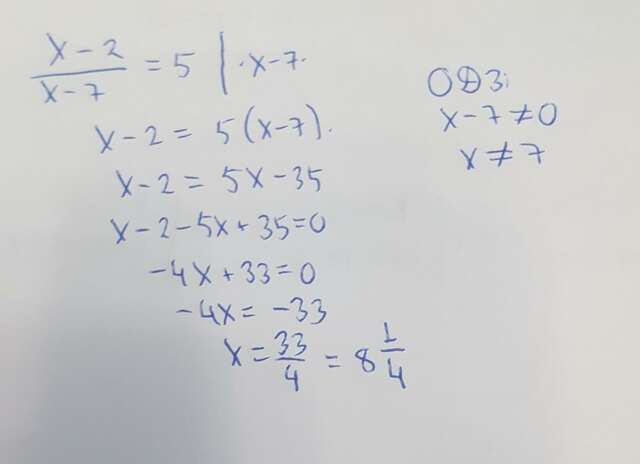 x-2/x-7 = 5 | ·x-7.
x-2 = 5(x-7).
x-2 = 5x-35
x-2-5x+35=0
-4x+33=0
-4x= -33
x = 33/4 = 8 1/4
ОДЗ:
x-7≠0
x≠7